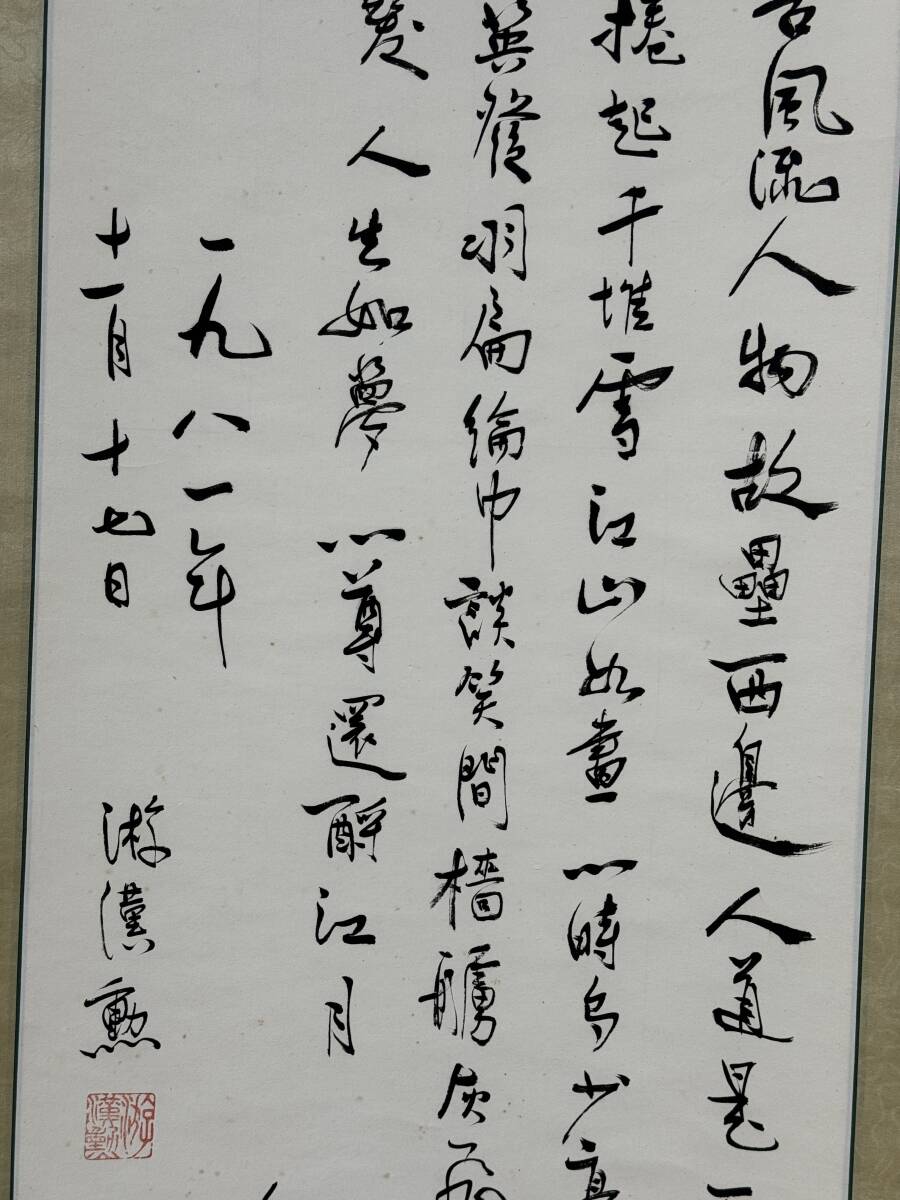 古風流人物故壘西邊人道是
捲起千堆雪江山如畫一時多少豪
英發羽扇綸巾談笑間檣艣灰飛
髮人生如夢一尊還酹江月
一九八一年
十一月十七日
游漢勲
游漢勲